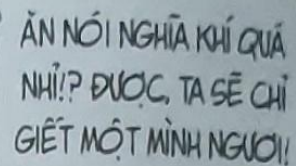 ĂN NÓI NGHĨA KHÍ QUÁ
NHỈ!? ĐƯỢC, TA SẼ CHỈ
GIẾT MỘT MÌNH NGƯƠI!